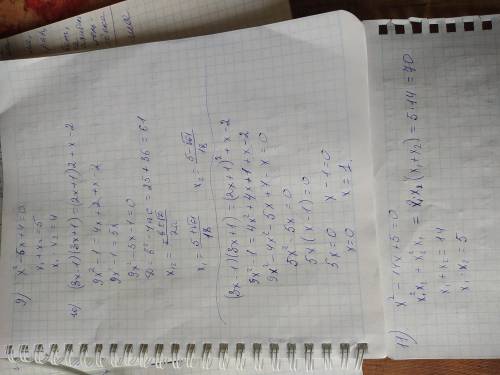 9) x² - 5x + 4 = 0
x₁ + x₂ = 5
x₁ · x₂ = 4
10) (3x-1)(3x+1) = (2x+1)2 + x - 2
9x² - 1 = 4x + 2 + x - 2
9x² - 1 = 5x
9x² - 5x - 1 = 0
D = b² - 4ac = 25 + 36 = 61
x₁ = (5+√61)/18 x₂ = (5-√61)/18
(3x-1)(3x+1) = (2x+1)² + x - 2
9x² - 1 = 4x² + 4x + 1 + x - 2
5x² - 5x = 0
5x(x-1) = 0
5x = 0 x - 1 = 0
x = 0 x = 1.
11) x² - 14x + 5 = 0
x₁²x₂ + x₂²x₁ = x₁x₂(x₁+x₂) = 5·14 = 70.
x₁ + x₂ = 14
x₁ · x₂ = 5